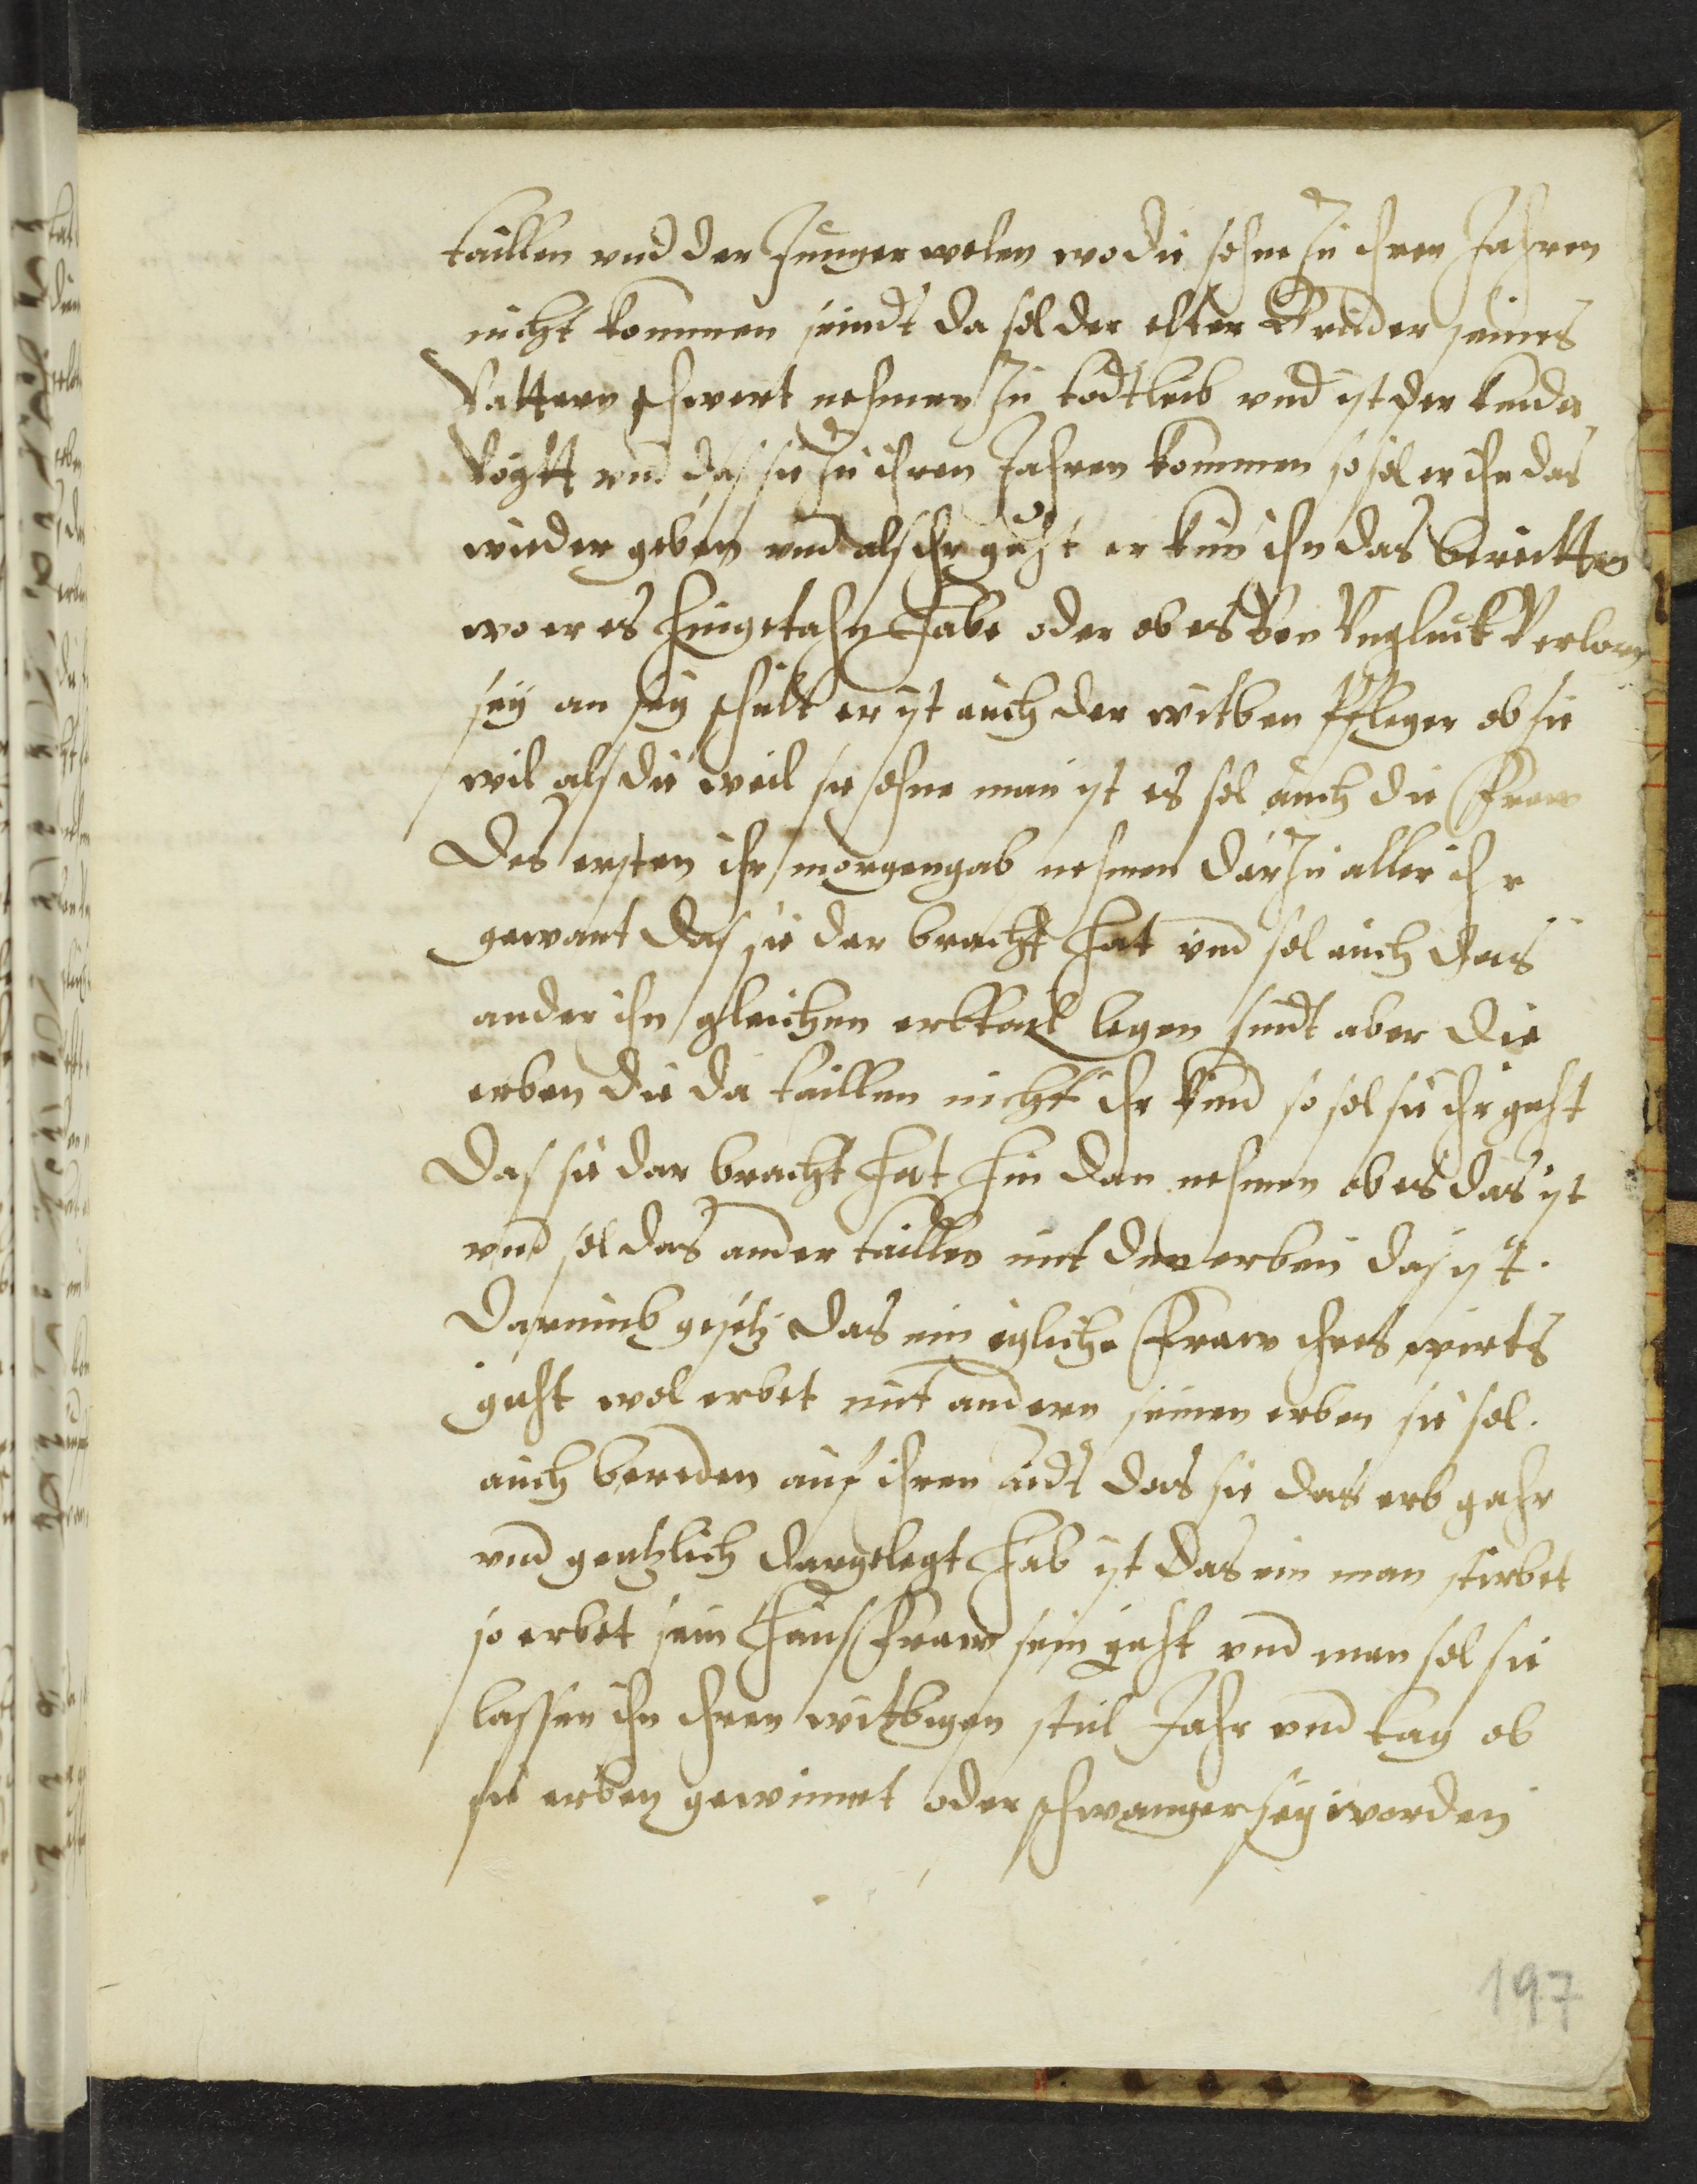 taillen vnd der Junger welen wo die sohne zu ihren Jahren
nicht kommen seindt da sol der elter Bruder seines
Vatteren schwert nehmen zu todtleib vnd ist der kinder
Vogtt vnd das sie zu ihren Jahren kommen so sol er ihn das
wieder geben vnd als ihr guht er kun ihn das bereitten
wo er es hingetahn habe oder ob es von Vngluck Verlorn
sey an sey schult er ist auch der witben Pfleger ob sie
wil als die weil sie ohne man ist es sol auch die Fraw
Des ersten ihr morgengab nehmen darzu aller ihr
gewant das sie dar bracht hat vnd sol auch das
ander ihn gleichen erbtail legen sindt aber die
erben die da taillen nicht ihr kind so sol sie ihr guht
Das sie dar bracht hat hin dan nehmen ob es das ist
vnd sol das ander taillen mit den erben das ist.
Darumb gesetz das ein igliche Fraw ihres wirts
guht wol erbet mit andern seinen erben sie sol.
auch bereden auf ihren aidt das sie das erb gahr
vnd gentzlich dargelegt hab ist das ein man stirbet
so erbet sein Hausfraw sein guht vnd man sol sie
lassen ihn ihren witbigen stul Jahr vnd tag ob
sie erben gewinnet oder schwanger sey worden
197